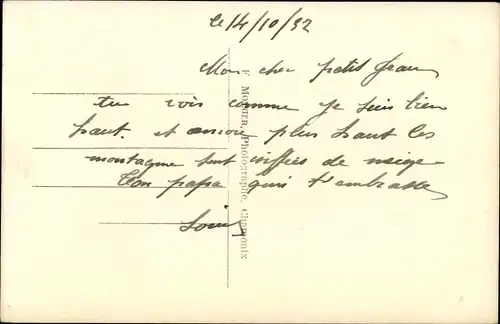 le 14/10/32
Mon cher petit Jean
tu vois comme je suis bien
haut. et encore plus haut les
montagne sont coiffées de neige
Ton papa qui t'embrasse
Louis
F. MONIER, Photographe, Chamonix